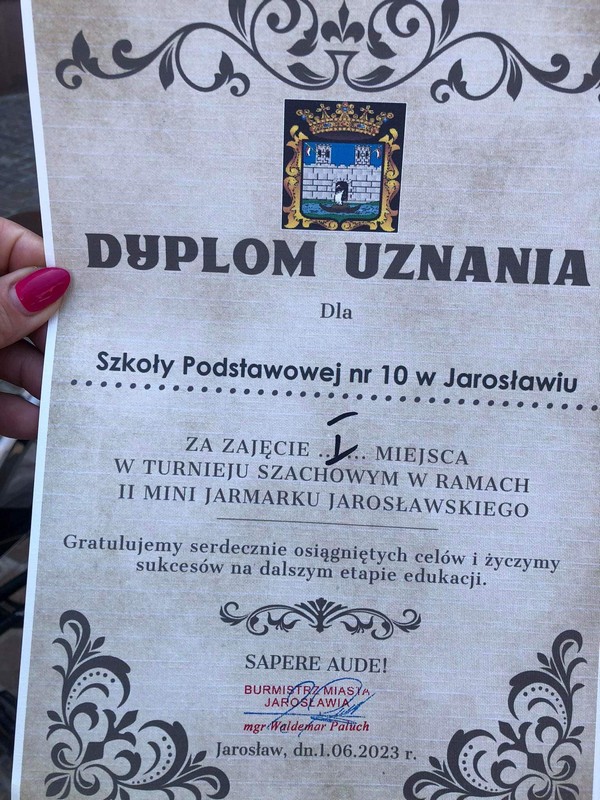 DYPLOM UZNANIA
Dla
Szkoły Podstawowej nr 10 w Jarosławiu
ZA ZAJĘCIE ...I... MIEJSCA
W TURNIEJU SZACHOWYM W RAMACH
II MINI JARMARKU JAROSŁAWSKIEGO
Gratulujemy serdecznie osiągniętych celów i życzymy
sukcesów na dalszym etapie edukacji.
SAPERE AUDE!
BURMISTRZ MIASTA
JAROSŁAWIA
mgr Waldemar Paluch
Jarosław, dn.1.06.2023 r.